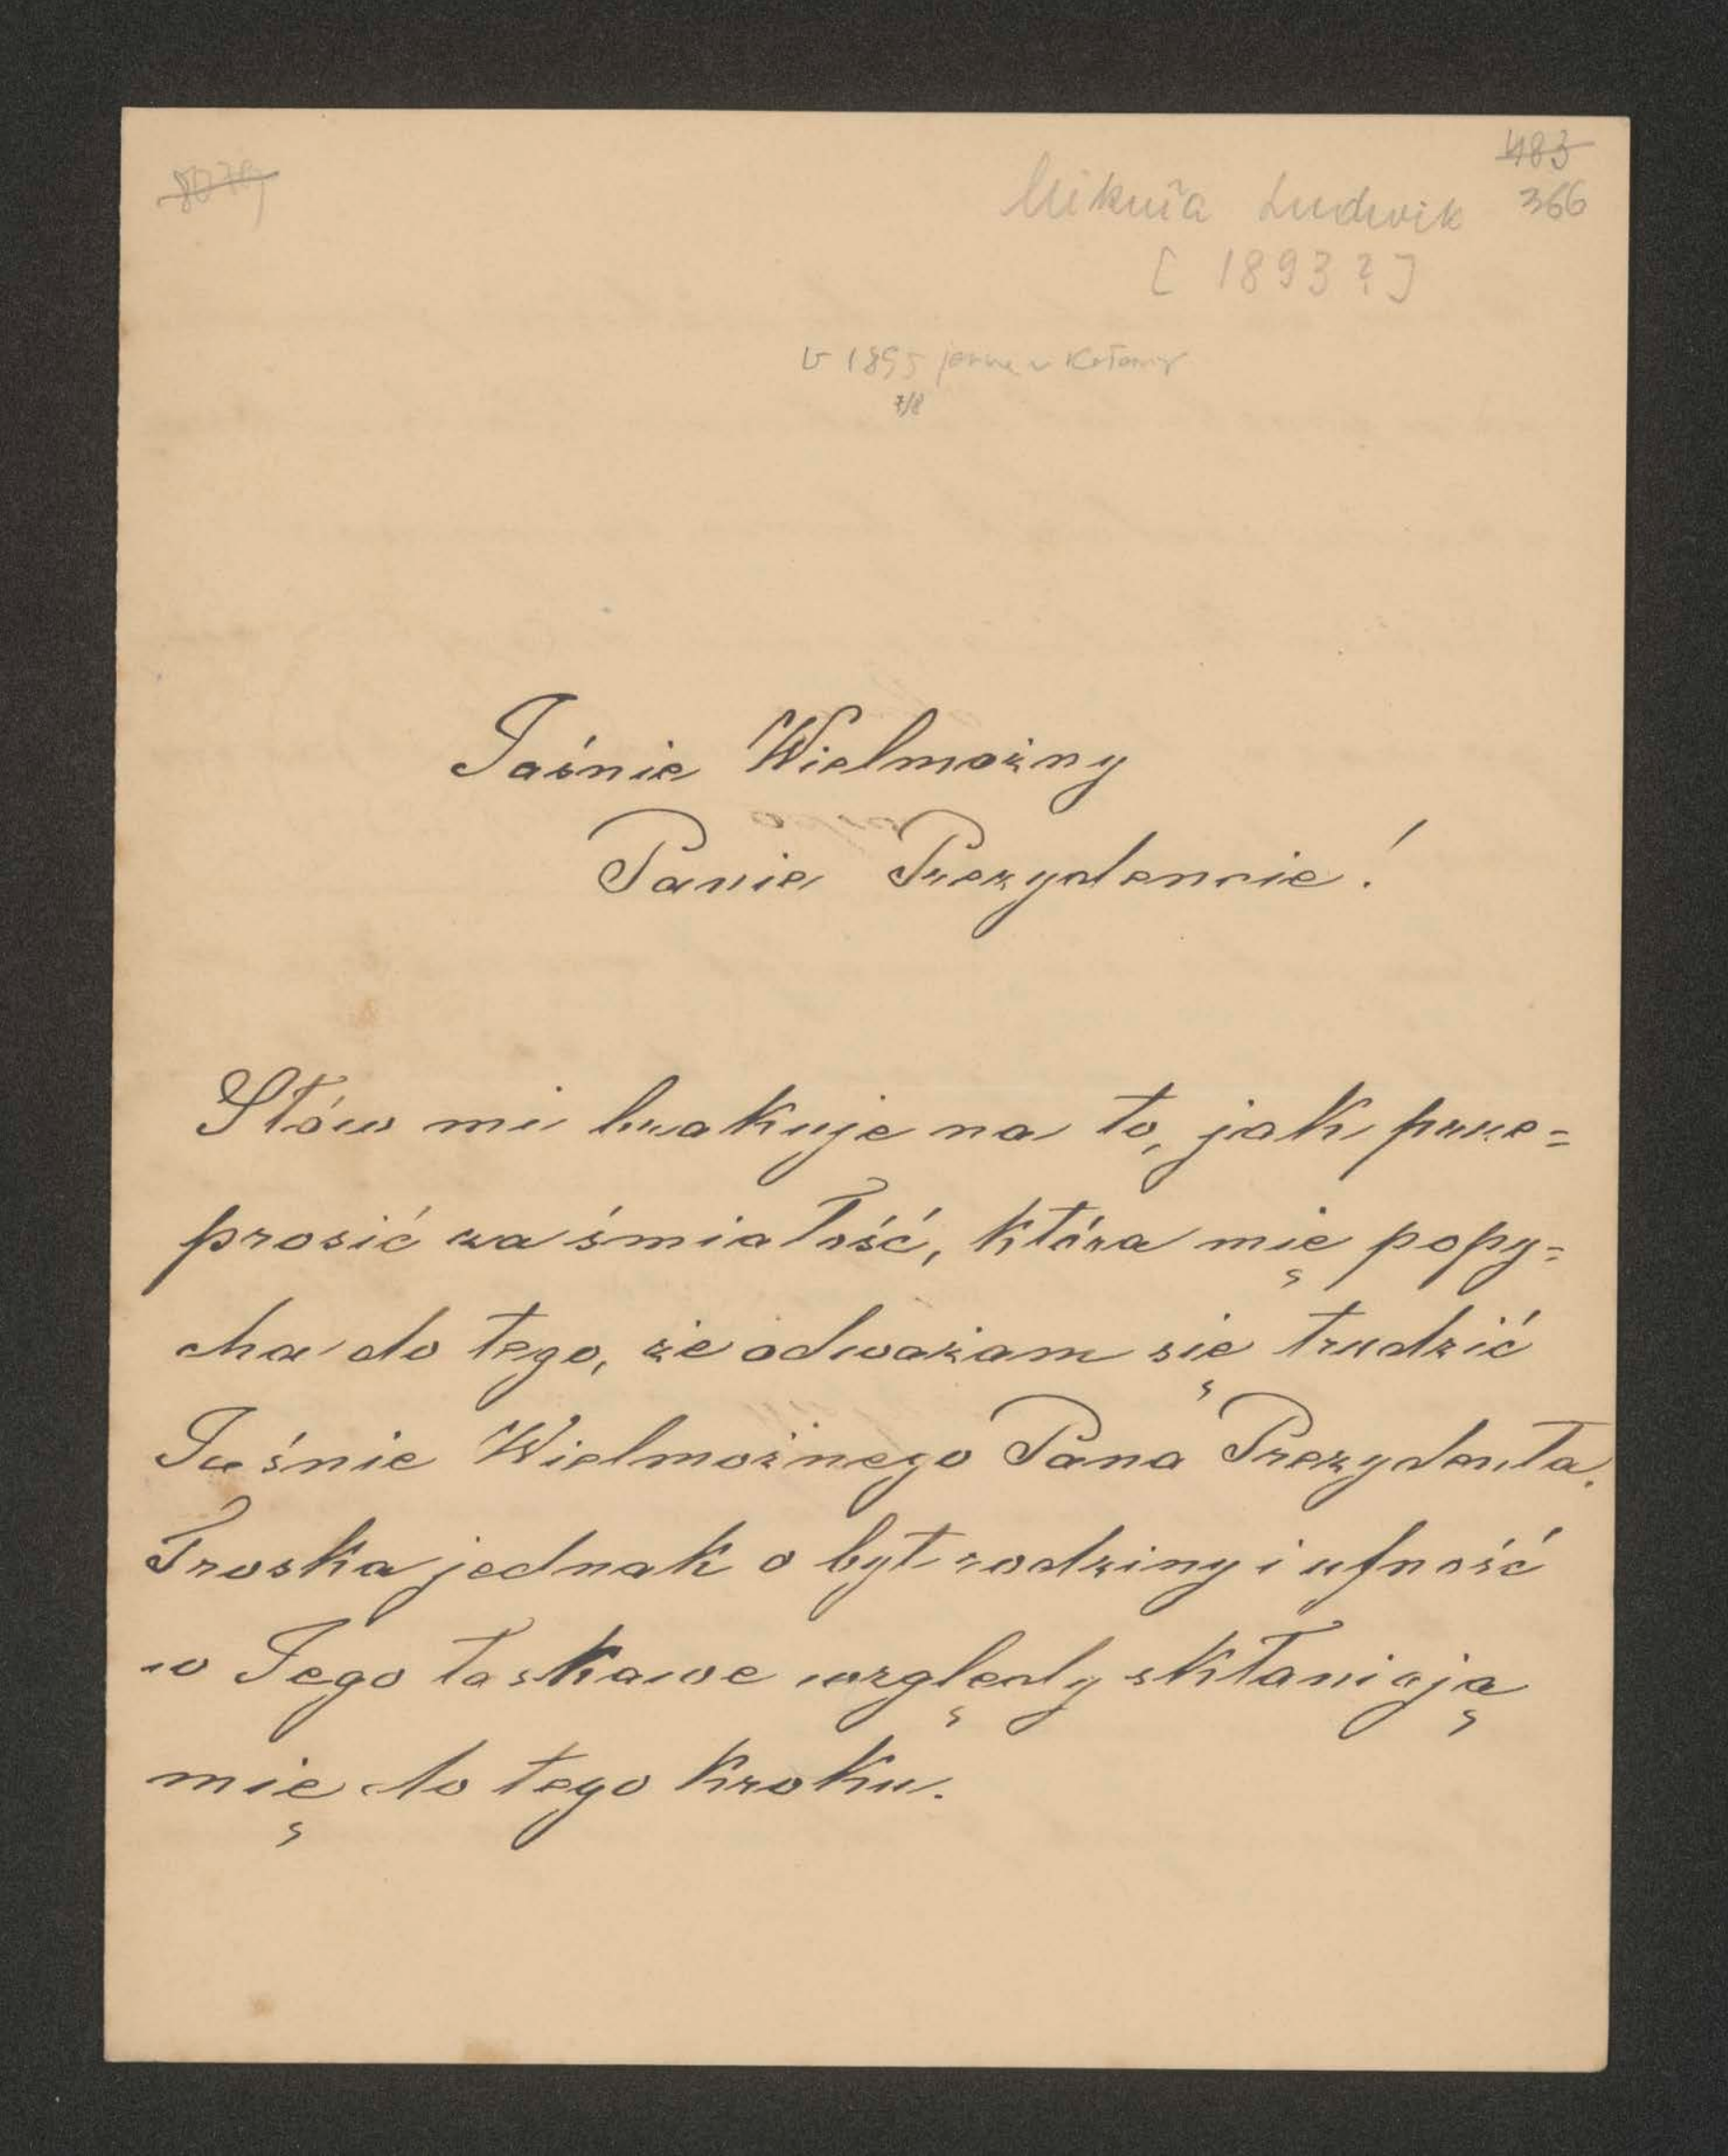 483
366
Mikuła Ludwik
[1893?]
7/8
Jaśnie Wielmożny
Panie Prezydencie!
Słów mi brakuje na to, jak prze=
prosić za śmiałość, która mię popy=
cha do tego, że odważam się trudzić
Jaśnie Wielmożnego Pana Prezydenta.
Troska jednak o byt rodziny i ufność
w Jego łaskawe względy skłaniają
mię do tego kroku.